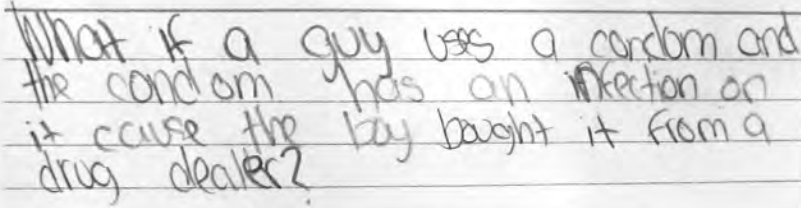 What if a guy uses a condom and
the condom has an infection on
it cause the boy bought it from a
drug dealer?